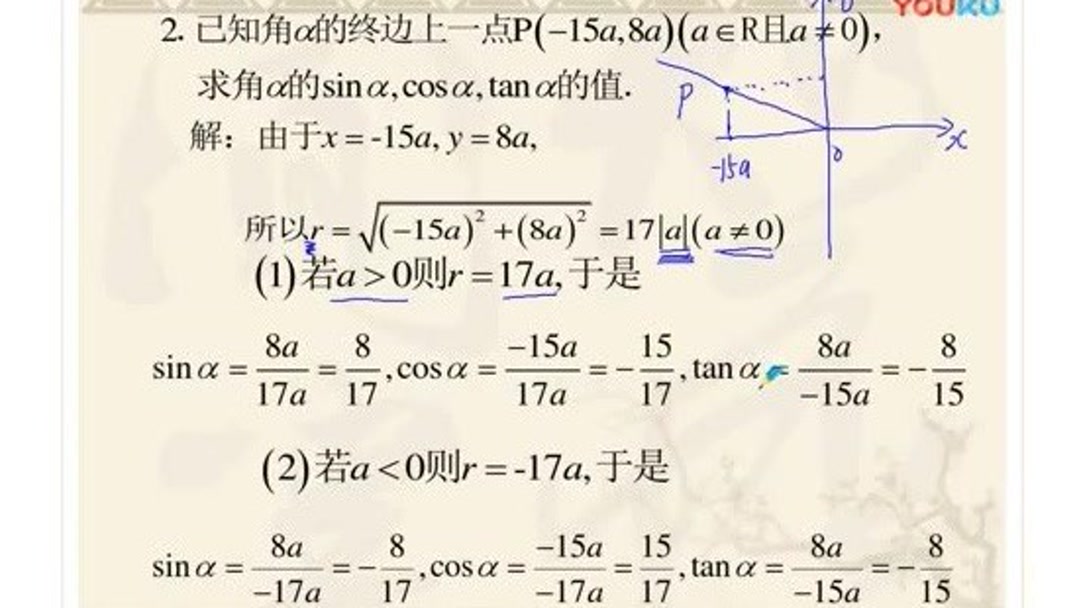 YOUKU
2. 已知角α的终边上一点P(−15a,8a)(a∈R且a≠0),
求角α的sinα,cosα,tanα的值.
P
x
0
-15a
解：由于x = -15a, y = 8a,
所以r = √((−15a)² + (8a)²) = 17|a|(a ≠ 0)
(1)若a > 0则r = 17a, 于是
sinα = 8a/17a = 8/17, cosα = −15a/17a = −15/17, tanα = 8a/−15a = −8/15
(2)若a < 0则r = -17a, 于是
sinα = 8a/−17a = −8/17, cosα = −15a/−17a = 15/17, tanα = 8a/−15a = −8/15